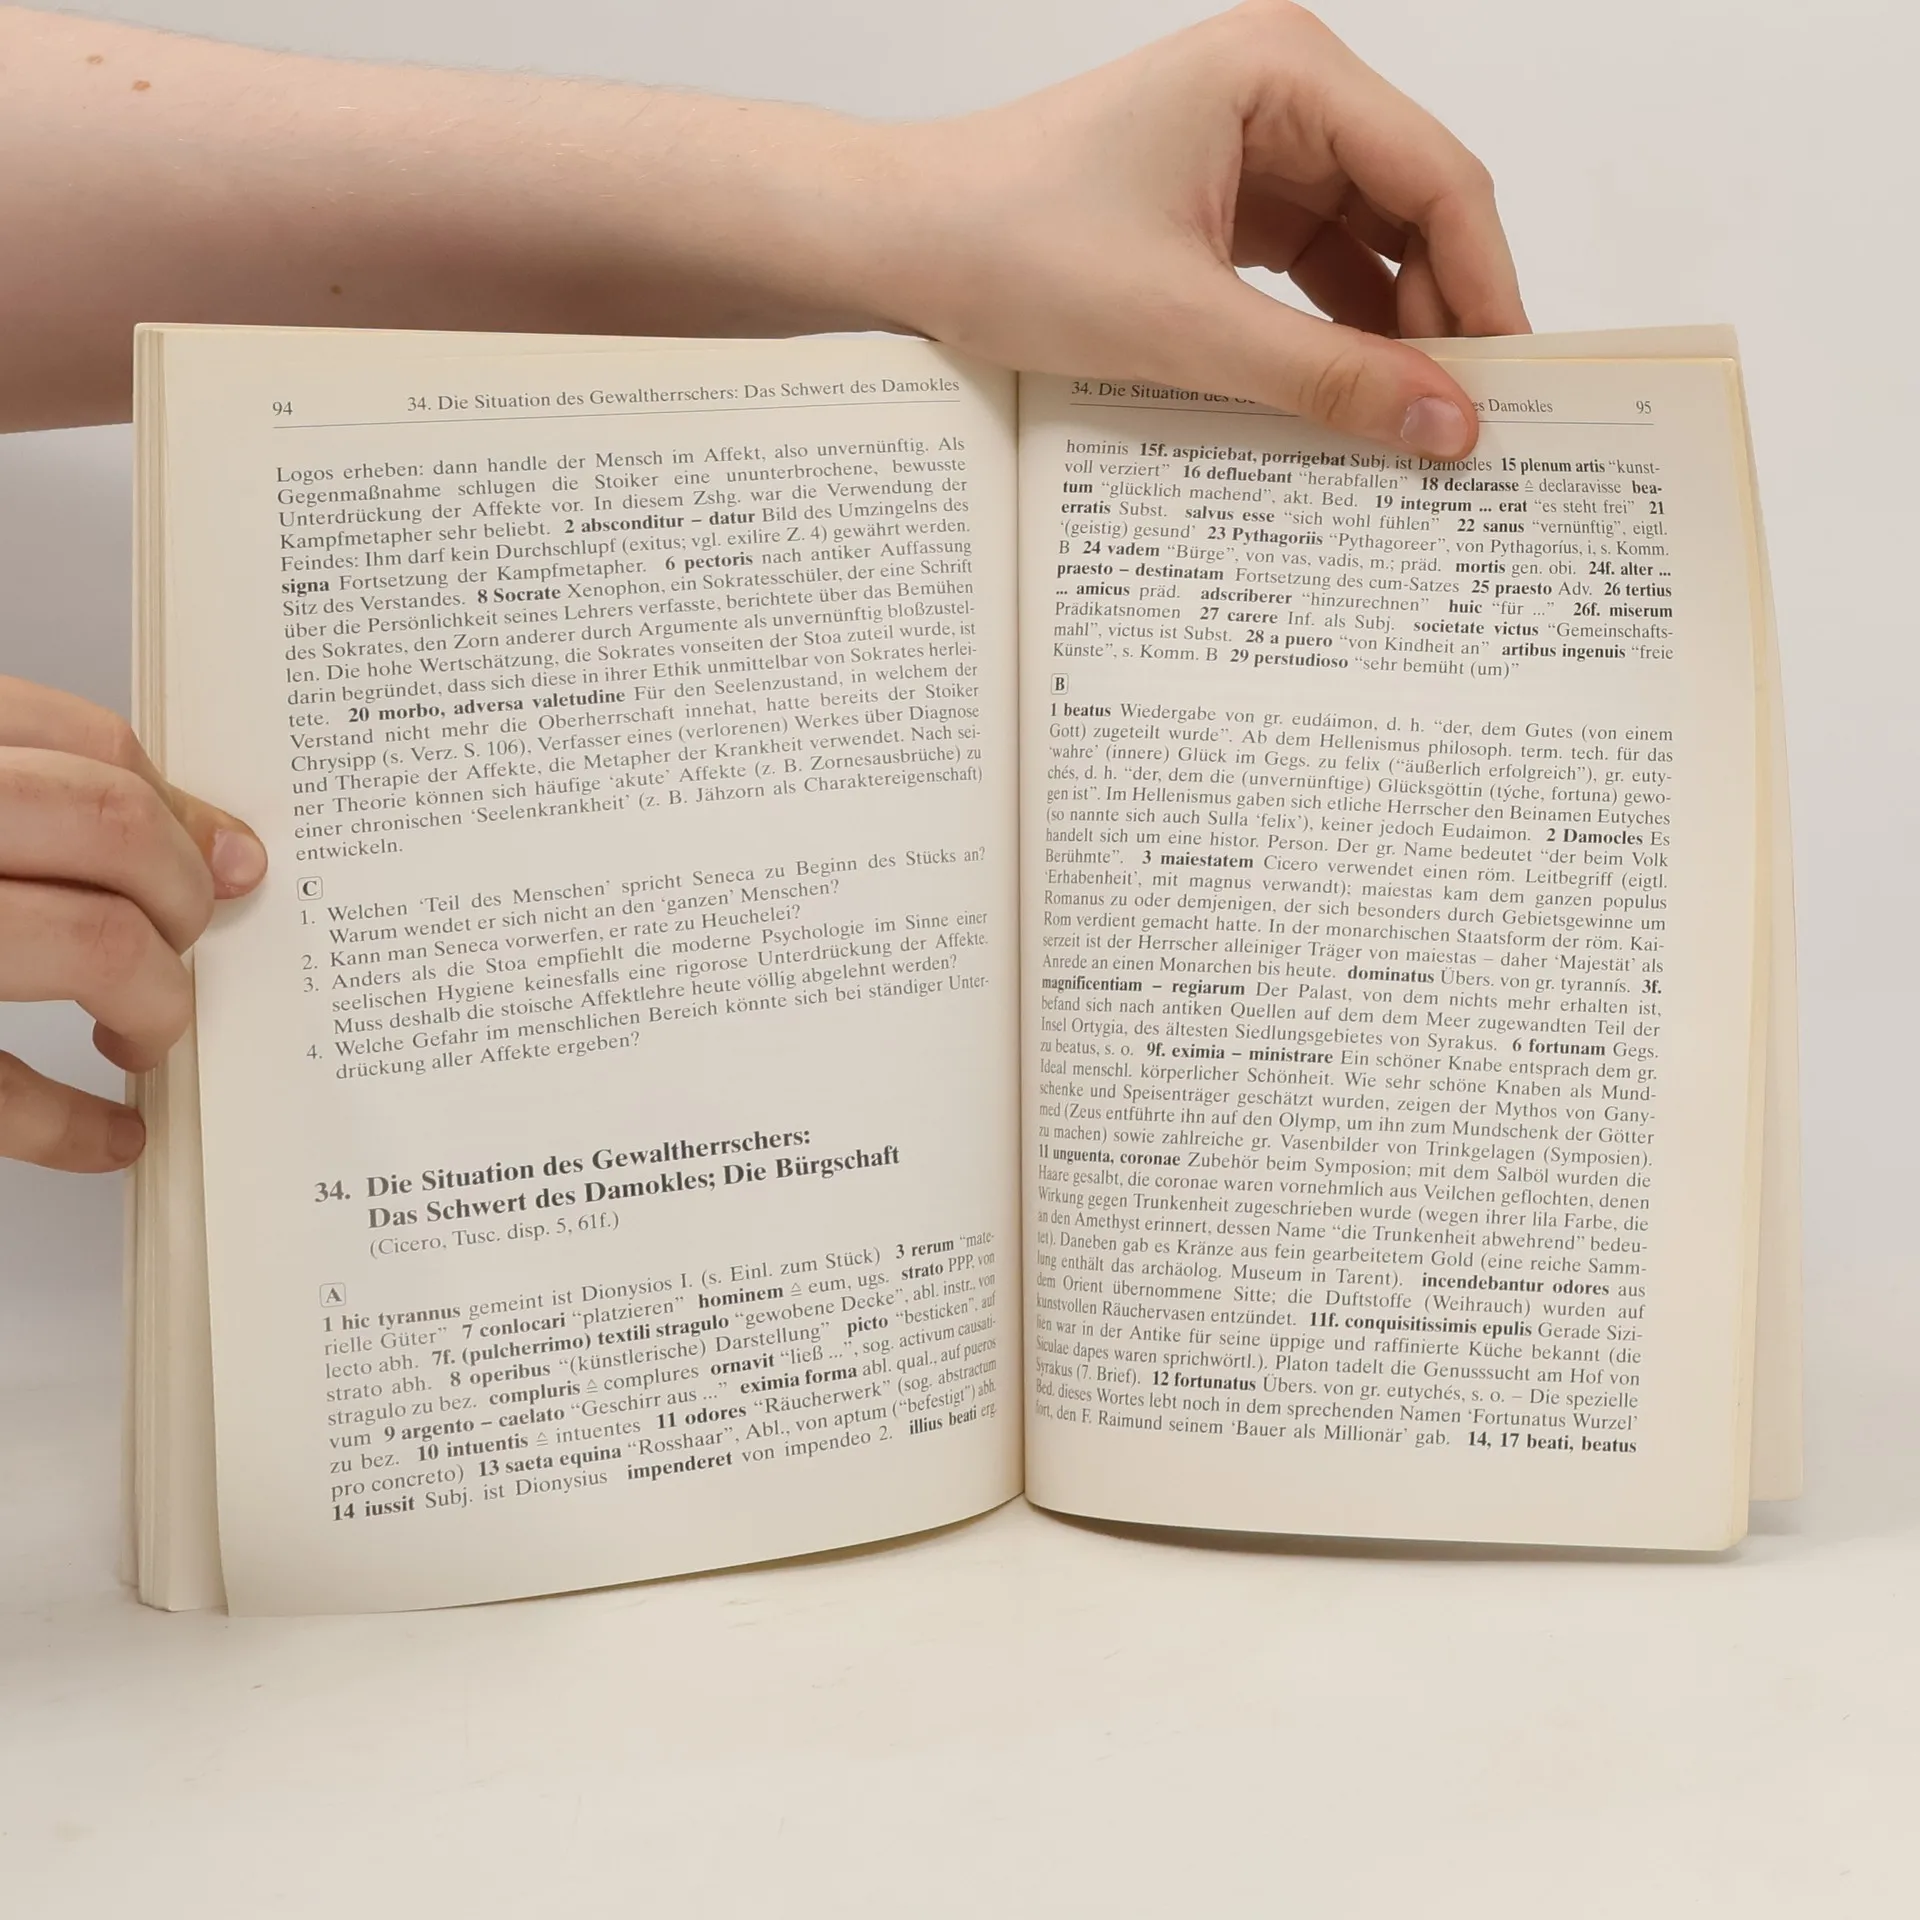 94 34. Die Situation des Gewaltherrschers: Das Schwert des Damokles
Logos erheben: dann handle der Mensch im Affekt, also unvernünftig. Als
Gegenmaßnahme schlugen die Stoiker eine ununterbrochene, bewusste
Unterdrückung der Affekte vor. In diesem Zshg. war die Verwendung der
Kampfmetapher sehr beliebt. 2 absconditur – datur Bild des Umzingelns des
Feindes: Ihm darf kein Durchschlupf (exitus; vgl. exilire Z. 4) gewährt werden.
signa Fortsetzung der Kampfmetapher. 6 pectoris nach antiker Auffassung
Sitz des Verstandes. 8 Socrate Xenophon, ein Sokratesschüler, der eine Schrift
über die Persönlichkeit seines Lehrers verfasste, berichtete über das Bemühen
des Sokrates, den Zorn anderer durch Argumente als unvernünftig bloßzustel-
len. Die hohe Wertschätzung, die Sokrates vonseiten der Stoa zuteil wurde, ist
darin begründet, dass sich diese in ihrer Ethik unmittelbar von Sokrates herlei-
tete. 20 morbo, adversa valetudine Für den Seelenzustand, in welchem der
Verstand nicht mehr die Oberherrschaft innehat, hatte bereits der Stoiker
Chrysipp (s. Verz. S. 106), Verfasser eines (verlorenen) Werkes über Diagnose
und Therapie der Affekte, die Metapher der Krankheit verwendet. Nach sei-
ner Theorie können sich häufige ‘akute’ Affekte (z. B. Zornesausbrüche) zu
einer chronischen ‘Seelenkrankheit’ (z. B. Jähzorn als Charaktereigenschaft)
entwickeln.
C
1. Welchen ‘Teil des Menschen’ spricht Seneca zu Beginn des Stücks an?
Warum wendet er sich nicht an den ‘ganzen’ Menschen?
2. Kann man Seneca vorwerfen, er rate zu Heuchelei?
3. Anders als die Stoa empfiehlt die moderne Psychologie im Sinne einer
seelischen Hygiene keinesfalls eine rigorose Unterdrückung der Affekte.
Muss deshalb die stoische Affektlehre heute völlig abgelehnt werden?
4. Welche Gefahr im menschlichen Bereich könnte sich bei ständiger Unter-
drückung aller Affekte ergeben?
34. Die Situation des Gewaltherrschers:
Das Schwert des Damokles; Die Bürgschaft
(Cicero, Tusc. disp. 5, 61f.)
A
1 hic tyrannus gemeint ist Dionysios I. (s. Einl. zum Stück) 3 rerum “mate-
rielle Güter” 7 conlocari “platzieren” hominem ≙ eum, ugs. strato PPP. von
lecto abh. 7f. (pulcherrimo) textili stragulo “gewobene Decke”, abl. instr., von
strato abh. 8 operibus “(künstlerische) Darstellung” picto “besticken”, auf
stragulo zu bez. compluris ≙ complures ornavit “ließ ...”, sog. activum causati-
vum 9 argento – caelato “Geschirr aus ...” eximia forma abl. qual., auf pueros
zu bez. 10 intuentis ≙ intuentes 11 odores “Räucherwerk” (sog. abstractum
pro concreto) 13 saeta equina “Rosshaar”, Abl., von aptum (“befestigt”) abh.
14 iussit Subj. ist Dionysius impenderet von impendeo 2. illius beati erg.
34. Die Situation des es Damokles 95
hominis 15f. aspiciebat, porrigebat Subj. ist Damocles 15 plenum artis “kunst-
voll verziert” 16 defluebant “herabfallen” 18 declarasse ≙ declaravisse bea-
tum “glücklich machend”, akt. Bed. 19 integrum ... erat “es steht frei” 21
erratis Subst. salvus esse “sich wohl fühlen” 22 sanus “vernünftig”, eigtl.
‘(geistig) gesund’ 23 Pythagoriis “Pythagoreer”, von Pythagoríus, i, s. Komm.
B 24 vadem “Bürge”, von vas, vadis, m.; präd. mortis gen. obi. 24f. alter ...
praesto – destinatam Fortsetzung des cum-Satzes 25 praesto Adv. 26 tertius
... amicus präd. adscriberer “hinzurechnen” huic “für ...” 26f. miserum
Prädikatsnomen 27 carere Inf. als Subj. societate victus “Gemeinschafts-
mahl”, victus ist Subst. 28 a puero “von Kindheit an” artibus ingenuis “freie
Künste”, s. Komm. B 29 perstudioso “sehr bemüht (um)”
B
1 beatus Wiedergabe von gr. eudáimon, d. h. “der, dem Gutes (von einem
Gott) zugeteilt wurde”. Ab dem Hellenismus philosoph. term. tech. für das
‘wahre’ (innere) Glück im Gegs. zu felix (“äußerlich erfolgreich”), gr. euty-
chés, d. h. “der, dem die (unvernünftige) Glücksgöttin (týche, fortuna) gewo-
gen ist”. Im Hellenismus gaben sich etliche Herrscher den Beinamen Eutyches
(so nannte sich auch Sulla ‘felix’), keiner jedoch Eudaimon. 2 Damocles Es
handelt sich um eine histor. Person. Der gr. Name bedeutet “der beim Volk
Berühmte”. 3 maiestatem Cicero verwendet einen röm. Leitbegriff (eigtl.
‘Erhabenheit’, mit magnus verwandt): maiestas kam dem ganzen populus
Romanus zu oder demjenigen, der sich besonders durch Gebietsgewinne um
Rom verdient gemacht hatte. In der monarchischen Staatsform der röm. Kai-
serzeit ist der Herrscher alleiniger Träger von maiestas – daher ‘Majestät’ als
Anrede an einen Monarchen bis heute. dominatus Übers. von gr. tyrannís. 3f.
magnificentiam – regiarum Der Palast, von dem nichts mehr erhalten ist,
befand sich nach antiken Quellen auf dem dem Meer zugewandten Teil der
Insel Ortygia, des ältesten Siedlungsgebietes von Syrakus. 6 fortunam Gegs.
zu beatus, s. o. 9f. eximia – ministrare Ein schöner Knabe entsprach dem gr.
Ideal menschl. körperlicher Schönheit. Wie sehr schöne Knaben als Mund-
schenke und Speisenträger geschätzt wurden, zeigen der Mythos von Gany-
med (Zeus entführte ihn auf den Olymp, um ihn zum Mundschenk der Götter
zu machen) sowie zahlreiche gr. Vasenbilder von Trinkgelagen (Symposien).
11 unguenta, coronae Zubehör beim Symposion; mit dem Salböl wurden die
Haare gesalbt, die coronae waren vornehmlich aus Veilchen geflochten, denen
Wirkung gegen Trunkenheit zugeschrieben wurde (wegen ihrer lila Farbe, die
an den Amethyst erinnert, dessen Name “die Trunkenheit abwehrend” bedeu-
tet). Daneben gab es Kränze aus fein gearbeitetem Gold (eine reiche Samm-
lung enthält das archäolog. Museum in Tarent). incendebantur odores aus
dem Orient übernommene Sitte; die Duftstoffe (Weihrauch) wurden auf
kunstvollen Räuchervasen entzündet. 11f. conquisitissimis epulis Gerade Sizi-
lien war in der Antike für seine üppige und raffinierte Küche bekannt (die
Siculae dapes waren sprichwörtl.). Platon tadelt die Genusssucht am Hof von
Syrakus (7. Brief). 12 fortunatus Übers. von gr. eutychés, s. o. – Die spezielle
Bed. dieses Wortes lebt noch in dem sprechenden Namen ‘Fortunatus Wurzel’
fort, den F. Raimund seinem ‘Bauer als Millionär’ gab. 14, 17 beati, beatus